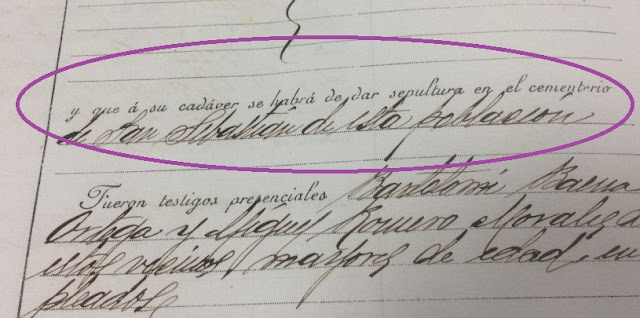 y que á su cadáver se habrá de dar sepultura en el cementerio
de San Sebastián de esta población
Fueron testigos presenciales Bartolomé Baena
Ortega y Miguel Romero Morales de
estos vecinos, mayores de edad, em
pleados